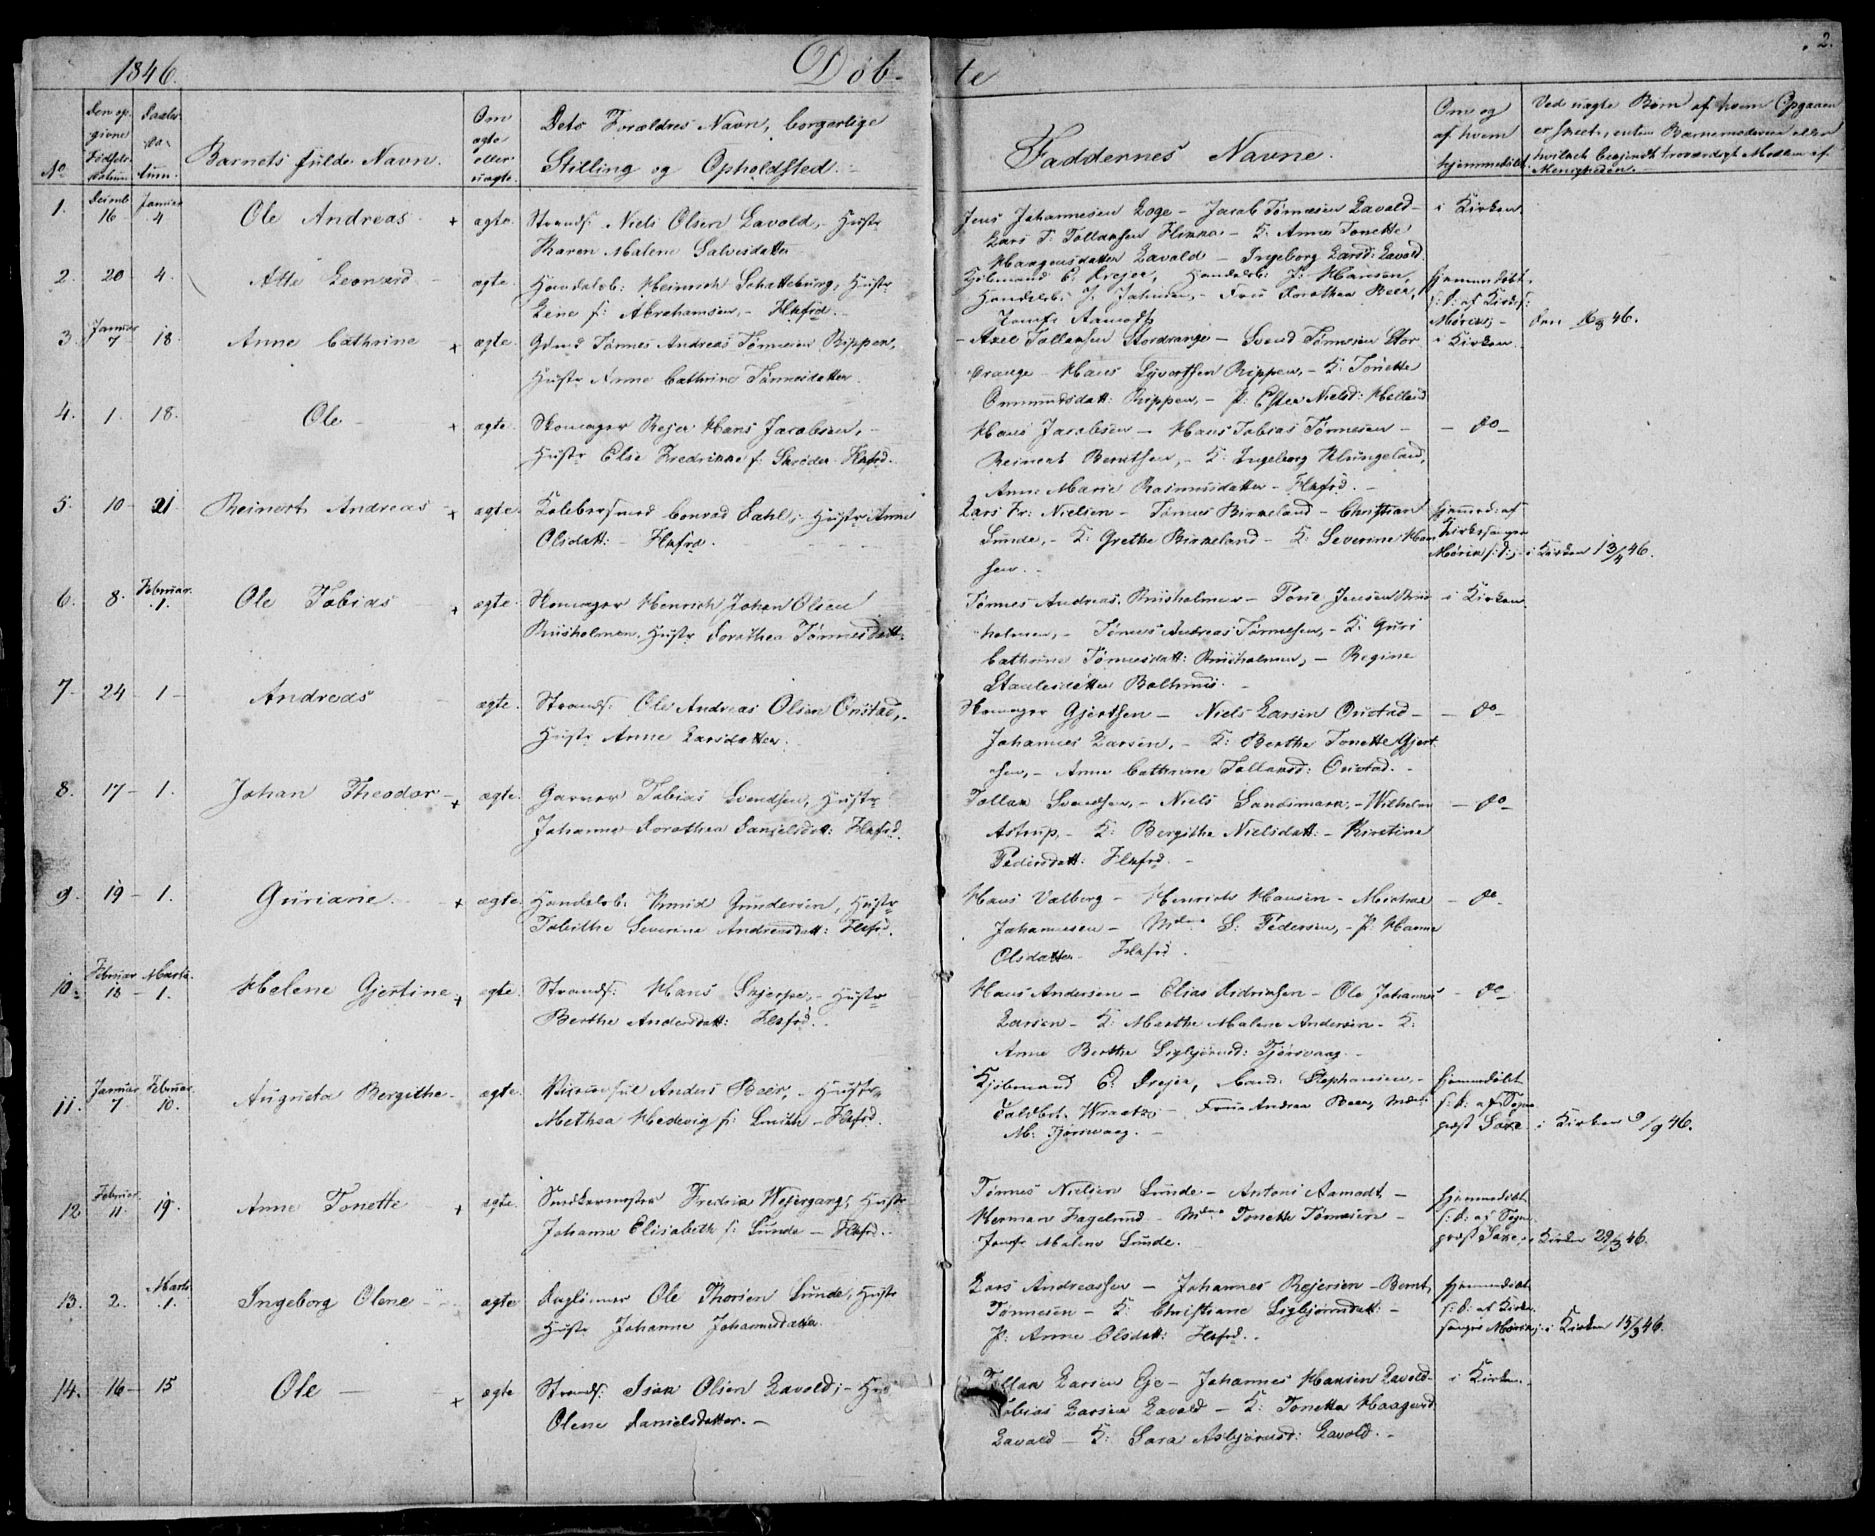 1846.
Døb-te
2.
No
Den op-
givne
Fødsels
Datum.
Daabs-
Da-
tum.
Barnets fulde Navn.
Om
ægte
eller
uægte.
Dets Forældres Navn, borgerlige
Stilling og Opholdsted.
Faddernes Navne.
Om og
af hvem
hjemmedøbt.
Ved uægte Børn af hvem Opgaven
er skeet, enten Barnemoderen eller
hvilket bekjendt troværdigt Medlem af
Menigheden.
1. Decmb. 16 Januar 4 Ole Andreas + ægte. Strands: Niels Olsen Lavold, Hustr
Karen Malene Salvesdatter
Jens Johannesen Loge - Jacob Tønnesen Lavold -
Lars T: Tollaksen - K: Anne Tonette
Haagensdatter Lavold - Ingeborg Larsd: Lavold
i Kirken
2. 20 4. Leonard ægte. Handelsb: Heinrich Schatteburg, Hustr
Lene f: Abrahamsen, - Flkfrd.
Kjøbmand C. Frejer, Handelsb: P. Hansen,
Handelsb: J. Jahnsen, - Frue Dorothea Beer,
Jomfr Aamodt
hjemmedøbt
f: d: af Kirkes:
Mørch; -
3. Januar 7 18 Anne Cathrine + ægte. Gdmd Tønnes Andreas Tønnesen Rippen,
Hustr Anne Cathrine Tønnesdatter.
- Axel Tollaksen Stordrange - Svend Tønnesen Stor-
drange - Hans Syvertsen Rippen, - K: Tonette
Ommundsdatt: Rippen, - P: Ester Nielsd: Helleud
i Kirken.
4. 1. 18. Ole - + ægte. Skomager Rejer Hans Jacobsen, -
Hustr Else Fredrikke f: Schrøder Flkfrd.
Hans Jacobsen - Hans Tobias Tønnesen -
Reinert Berntsen, - K: Ingeborg Klungeland,
Anne Marie Rasmusdatter - Flkfrd. -
- do -
5. 10 - 21 Reinert Andreas + ægte. Conrad Dahl; Hustr Anne
Olsdatt: - Flkfrd.
Lars Fr: Nielsen - Tønnes Birkeland - Christian
Lunde, - K: Grethe Birkeland - K: Severine Han-
sen. -
hjemmd: af
Kirkesanger
Mørch f: d:; i Kirken 13/4 46.
6. 8. Februar 1. Ole Tobias + ægte. Skomager Henrich Johan Olsen
Riisholmen, Hustr Dorothea Tønnesdatt:
Tønnes Andreas Riisholmen - Tone Jensen Riis-
holmen, - Tønnes Andreas Tønnesen, - K: Guri
Cathrine Tønnesdatt: Riisholmen, - Regine
Staalesdatter
i Kirken
7. 24 - 1 - Andreas ægte. Strands: Ole Andreas Olsen Onstad, -
Hustr Anne Larsdatter.
Skomager Gjertsen - Niels Larsen Onstad -
Johannes Larsen, - K: Berthe Tonette Gjert-
sen, - Anne Cathrine Tollaksd: Onstad. -
- do -
8. 17 - 1. Johan Theodor - + ægte. Garver Tobias Svendsen, Hustr
Johanne Dorothea Danielsdatt: Flkfrd.
Tollak Svendsen, - Niels Sandsmark, - Wilhelm
Astrup, - K: Bergithe Nielsdatt: - Kirstine
Pedersdatt: Flkfrd. -
- do -
9. 19 - 1. Guriane. + ægte. Handelsb: Knud Gundersen, Hustr
Tabithe Severine Andreasdatt: Flkfrd.
Hans Valberg - Henrich Hansen - Michael
Johannesen - Mdme S: Pedersen, - P: Hanne
Olsdatter Flkfrd.
- do -
10. Februar 18 - Marts 1. Helene Gjertine + ægte Strands: Hans Skjerpe, - Hustr
Berthe Andersdatt: Flkfrd. -
Hans Andersen - Elias Didriksen - Ole Johannes
Larsen - K: Marthe Malene Andersen - K:
Anne Berthe Sigbjørnsd: Tjørsvaag -
- do -
11. Januar 7 Februar 10. Augusta Bergithe - ægte. Anders Beer, - Hustr
Methea Hedevig f: Smith - Flkfrd.
Kjøbmand C. Frejer, Cand: Stephansen, -
Toldbet. Wraatz - Frue Andrea Beer, Mdme
M: Tjørsvaag. -
hjemmedøbt
f: d: af Sogne-
præst Saxe - i Kirken 9/9 46.
12. Februar 11. 19. Anne Tonette + ægte Snedkermester Fredrik Wejergang, Hustr
Johanne Elisabeth f: Lunde - Flkfrd. -
Tønnes Nielsen Lunde - Antoni Aamodt -
Herman Fagelund - Mdme Tonette Tønnesen -
Jomfr Malene Lunde.
hjemmedøbt
f: d: af Sogne-
præst Saxe, i Kirken 29/3 46.
13. 2. Marts 1. Ingeborg Olene ægte Daglønner Ole Thorsen Lunde, Hustr
Hustr Johanne Johannesdatter.
Lars Andreassen - Johannes Rejersen - Bernt
Tønnesen - K: Christiane Sigbjørnsdatt: -
P: Anne Olsdatt: Flkfrd. -
hjemmedøbt
f: d: af Kirke-
sanger Mørch; i Kirken 15/3 46.
14. 16 - 15 Ole - + ægte Strands: Isak Olsen Lavold; -
Olene Danielsdatter. -
Tollak Larsen Eje - Johannes Hansen Lavold -
Tobias Larsen Lavold - K: Tonette Haagensd:
Lavold - K: Sara Asbjørnsd: Lavold. -
i Kirken.